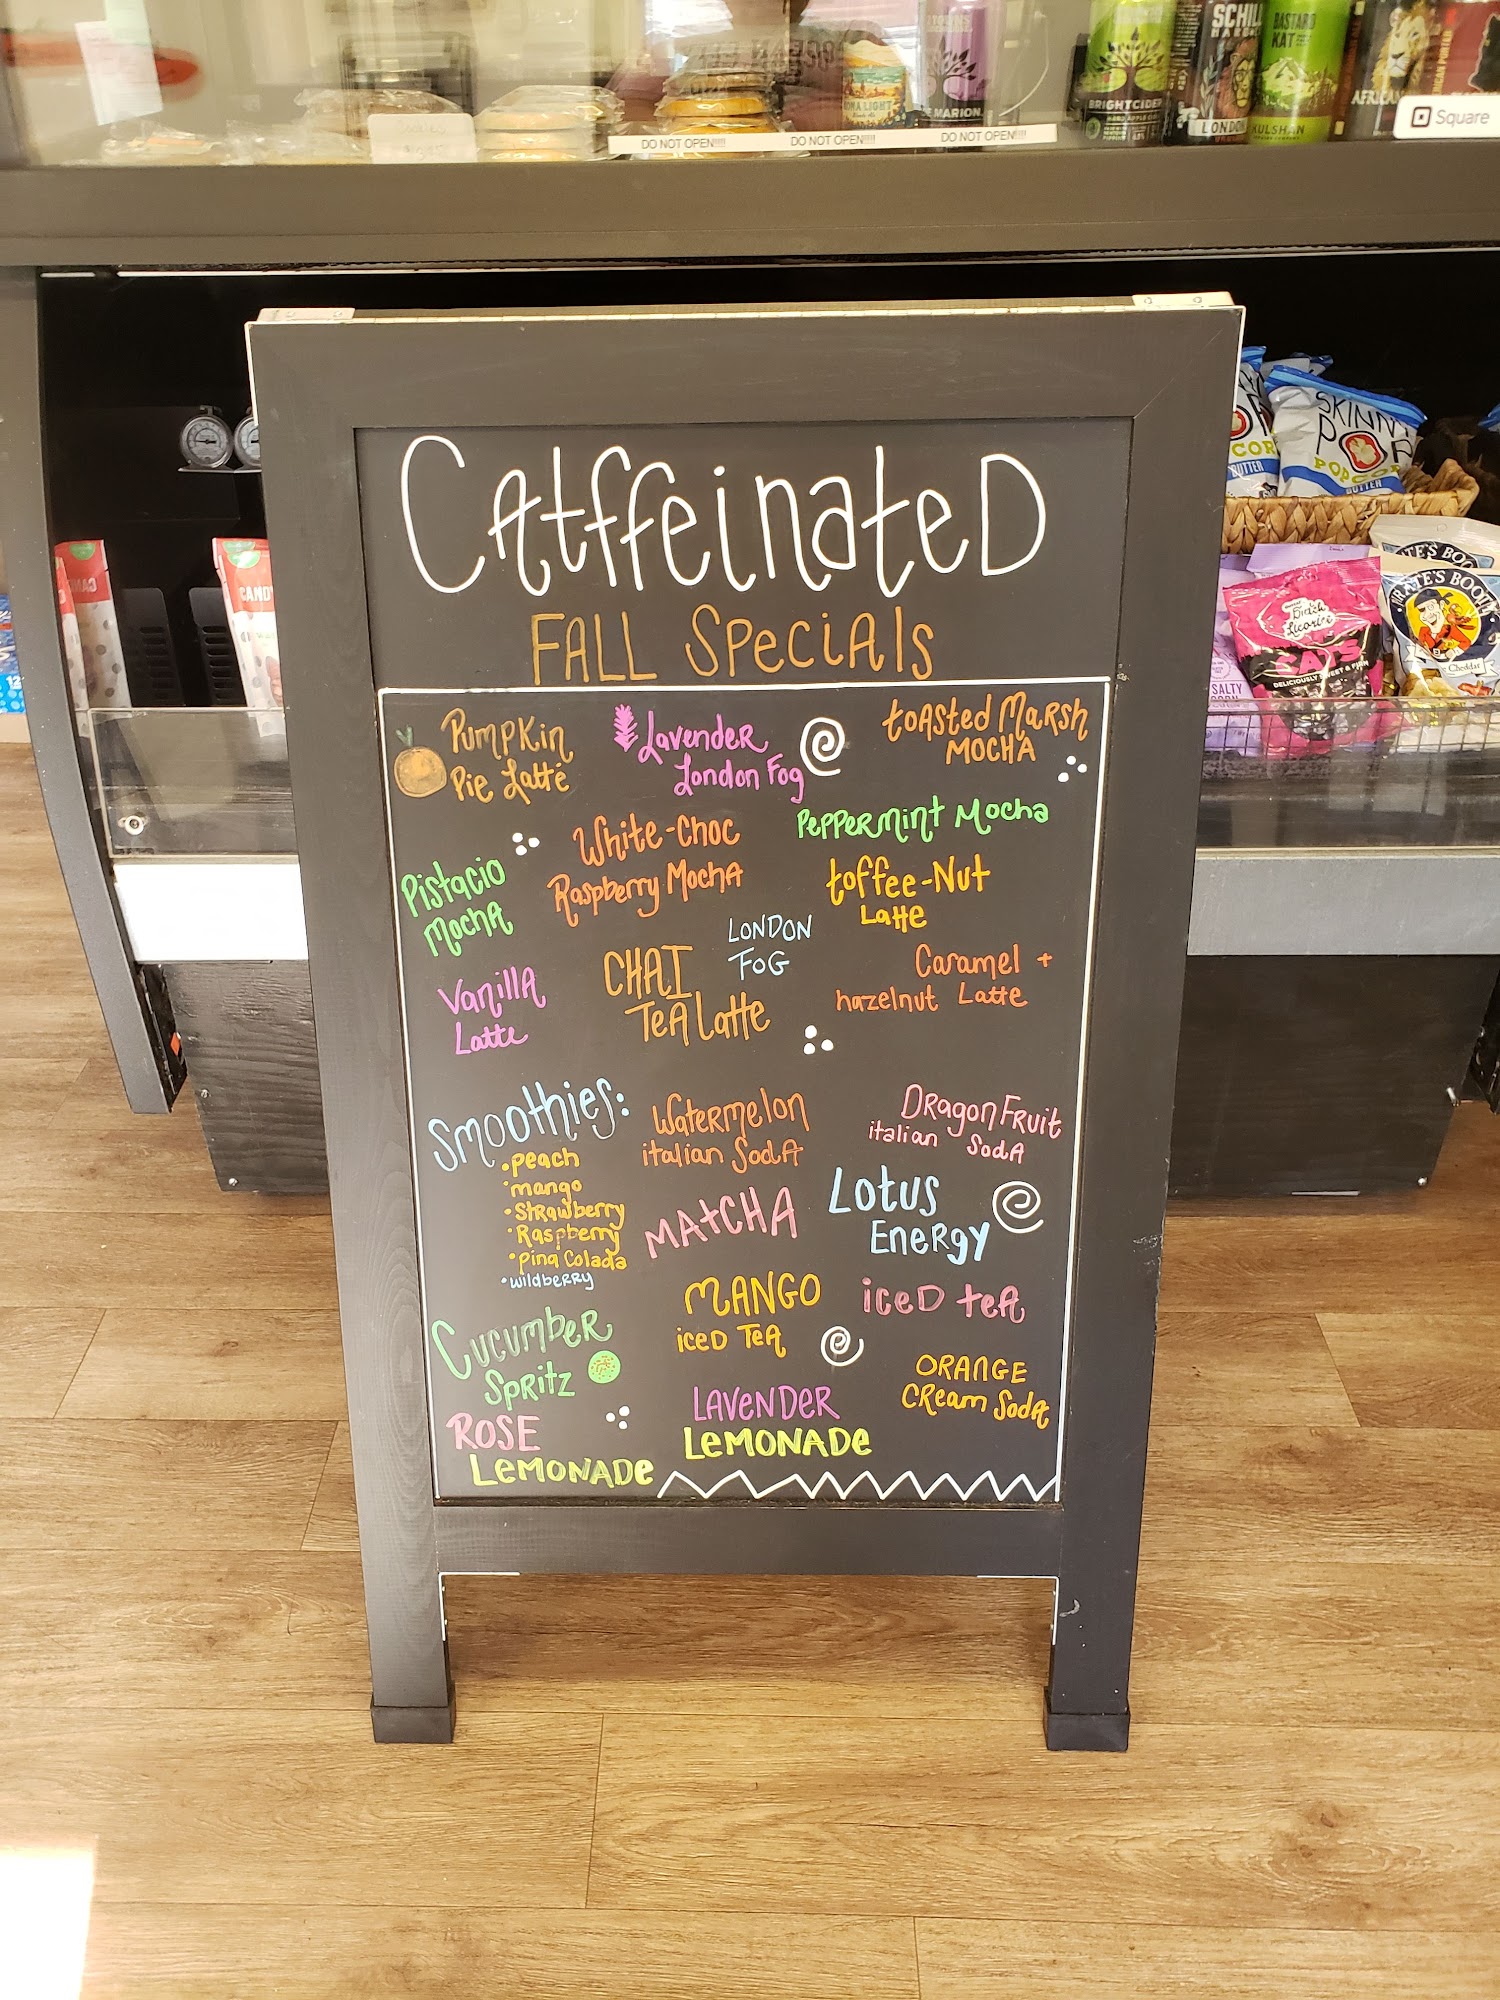 DO NOT OPEN!!!!
DO NOT OPEN!!!!
DO NOT OPEN!!!!
MARION
BRIGHTCIDER
LONDON
BASTARD
KAT
KULSHAN
AFRICAN
Square
CatffeinateD
FALL Specials
Pumpkin
Pie Latte
Lavender
London Fog
toasted Marsh
MOCHA
Pistacio
MocHA
White-Choc
Raspberry MocHA
PePPeRMint Mocha
toffee-Nut
Latte
LONDON
FOG
Vanilla
Latte
CHAI
TeA latte
Caramel +
hazelnut Latte
Smoothies:
•peach
•mango
•Strawberry
•Raspberry
•pina Colada
•wildberry
Watermelon
italian SodA
DRagonFRuit
italian SodA
MAtCHA
LOtus
EneRgy
MANGO
iceD TeA
iceD teA
CucumbeR
SPRitz
ORANGE
CReam SodA
ROSE
LeMONADe
LAVeNDeR
LeMONADe
SKINNY
POP
POPCOR
BUTTER
BUTTER
CATS
DELICIOUSLY SWEET & FIRM
SALTY
Cheddar
CAND